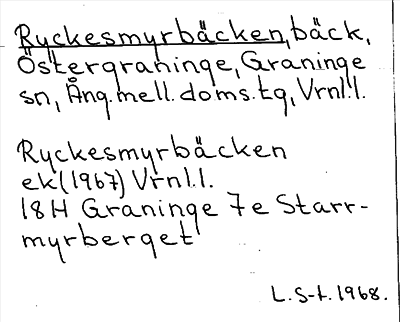 Ryckesmyrbäcken, bäck,
Östergraninge, Graninge
sn, Ång. mell. doms. tg, Vrnl. l.
Ryckesmyrbäcken
ek (1967) Vrnl. l.
18H Graninge 7e Starr-
myrberget
L. S-t. 1968.